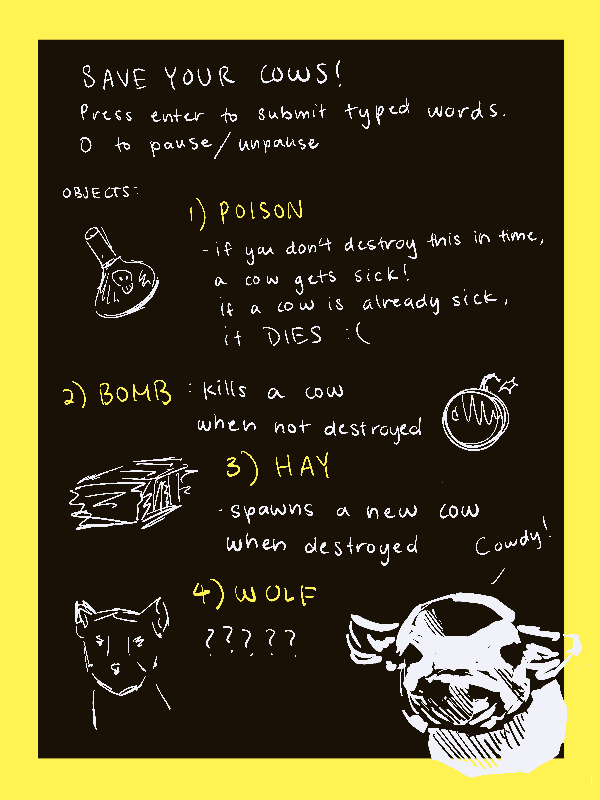 SAVE YOUR COWS!
Press enter to submit typed words.
0 to pause/unpause
OBJECTS:
1) POISON
- if you don't destroy this in time,
a cow gets sick!
if a cow is already sick,
it DIES :(
2) BOMB : kills a cow
when not destroyed
3) HAY
- spawns a new cow
when destroyed
Cowdy!
4) WOLF
?????